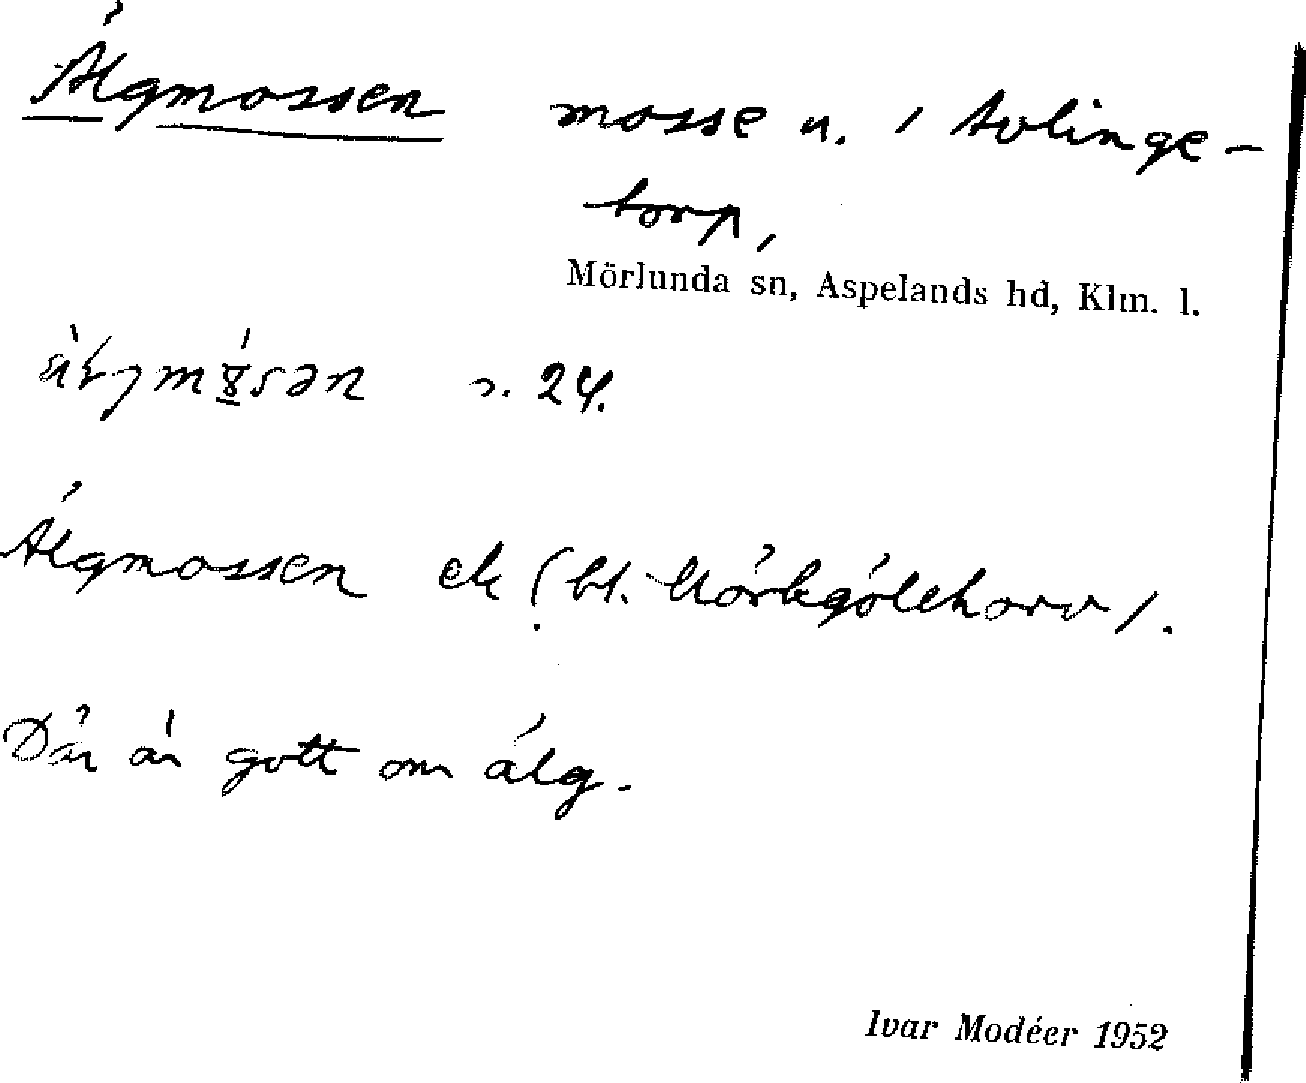 Älgmossen mosse n. / Avlinge-
torp,
Mörlunda sn, Aspelands hd, Klm. l.
s. 24.
Älgmossen ek (bl. Mörkgöleharv).
Där är gott om älg.
Ivar Modéer 1952